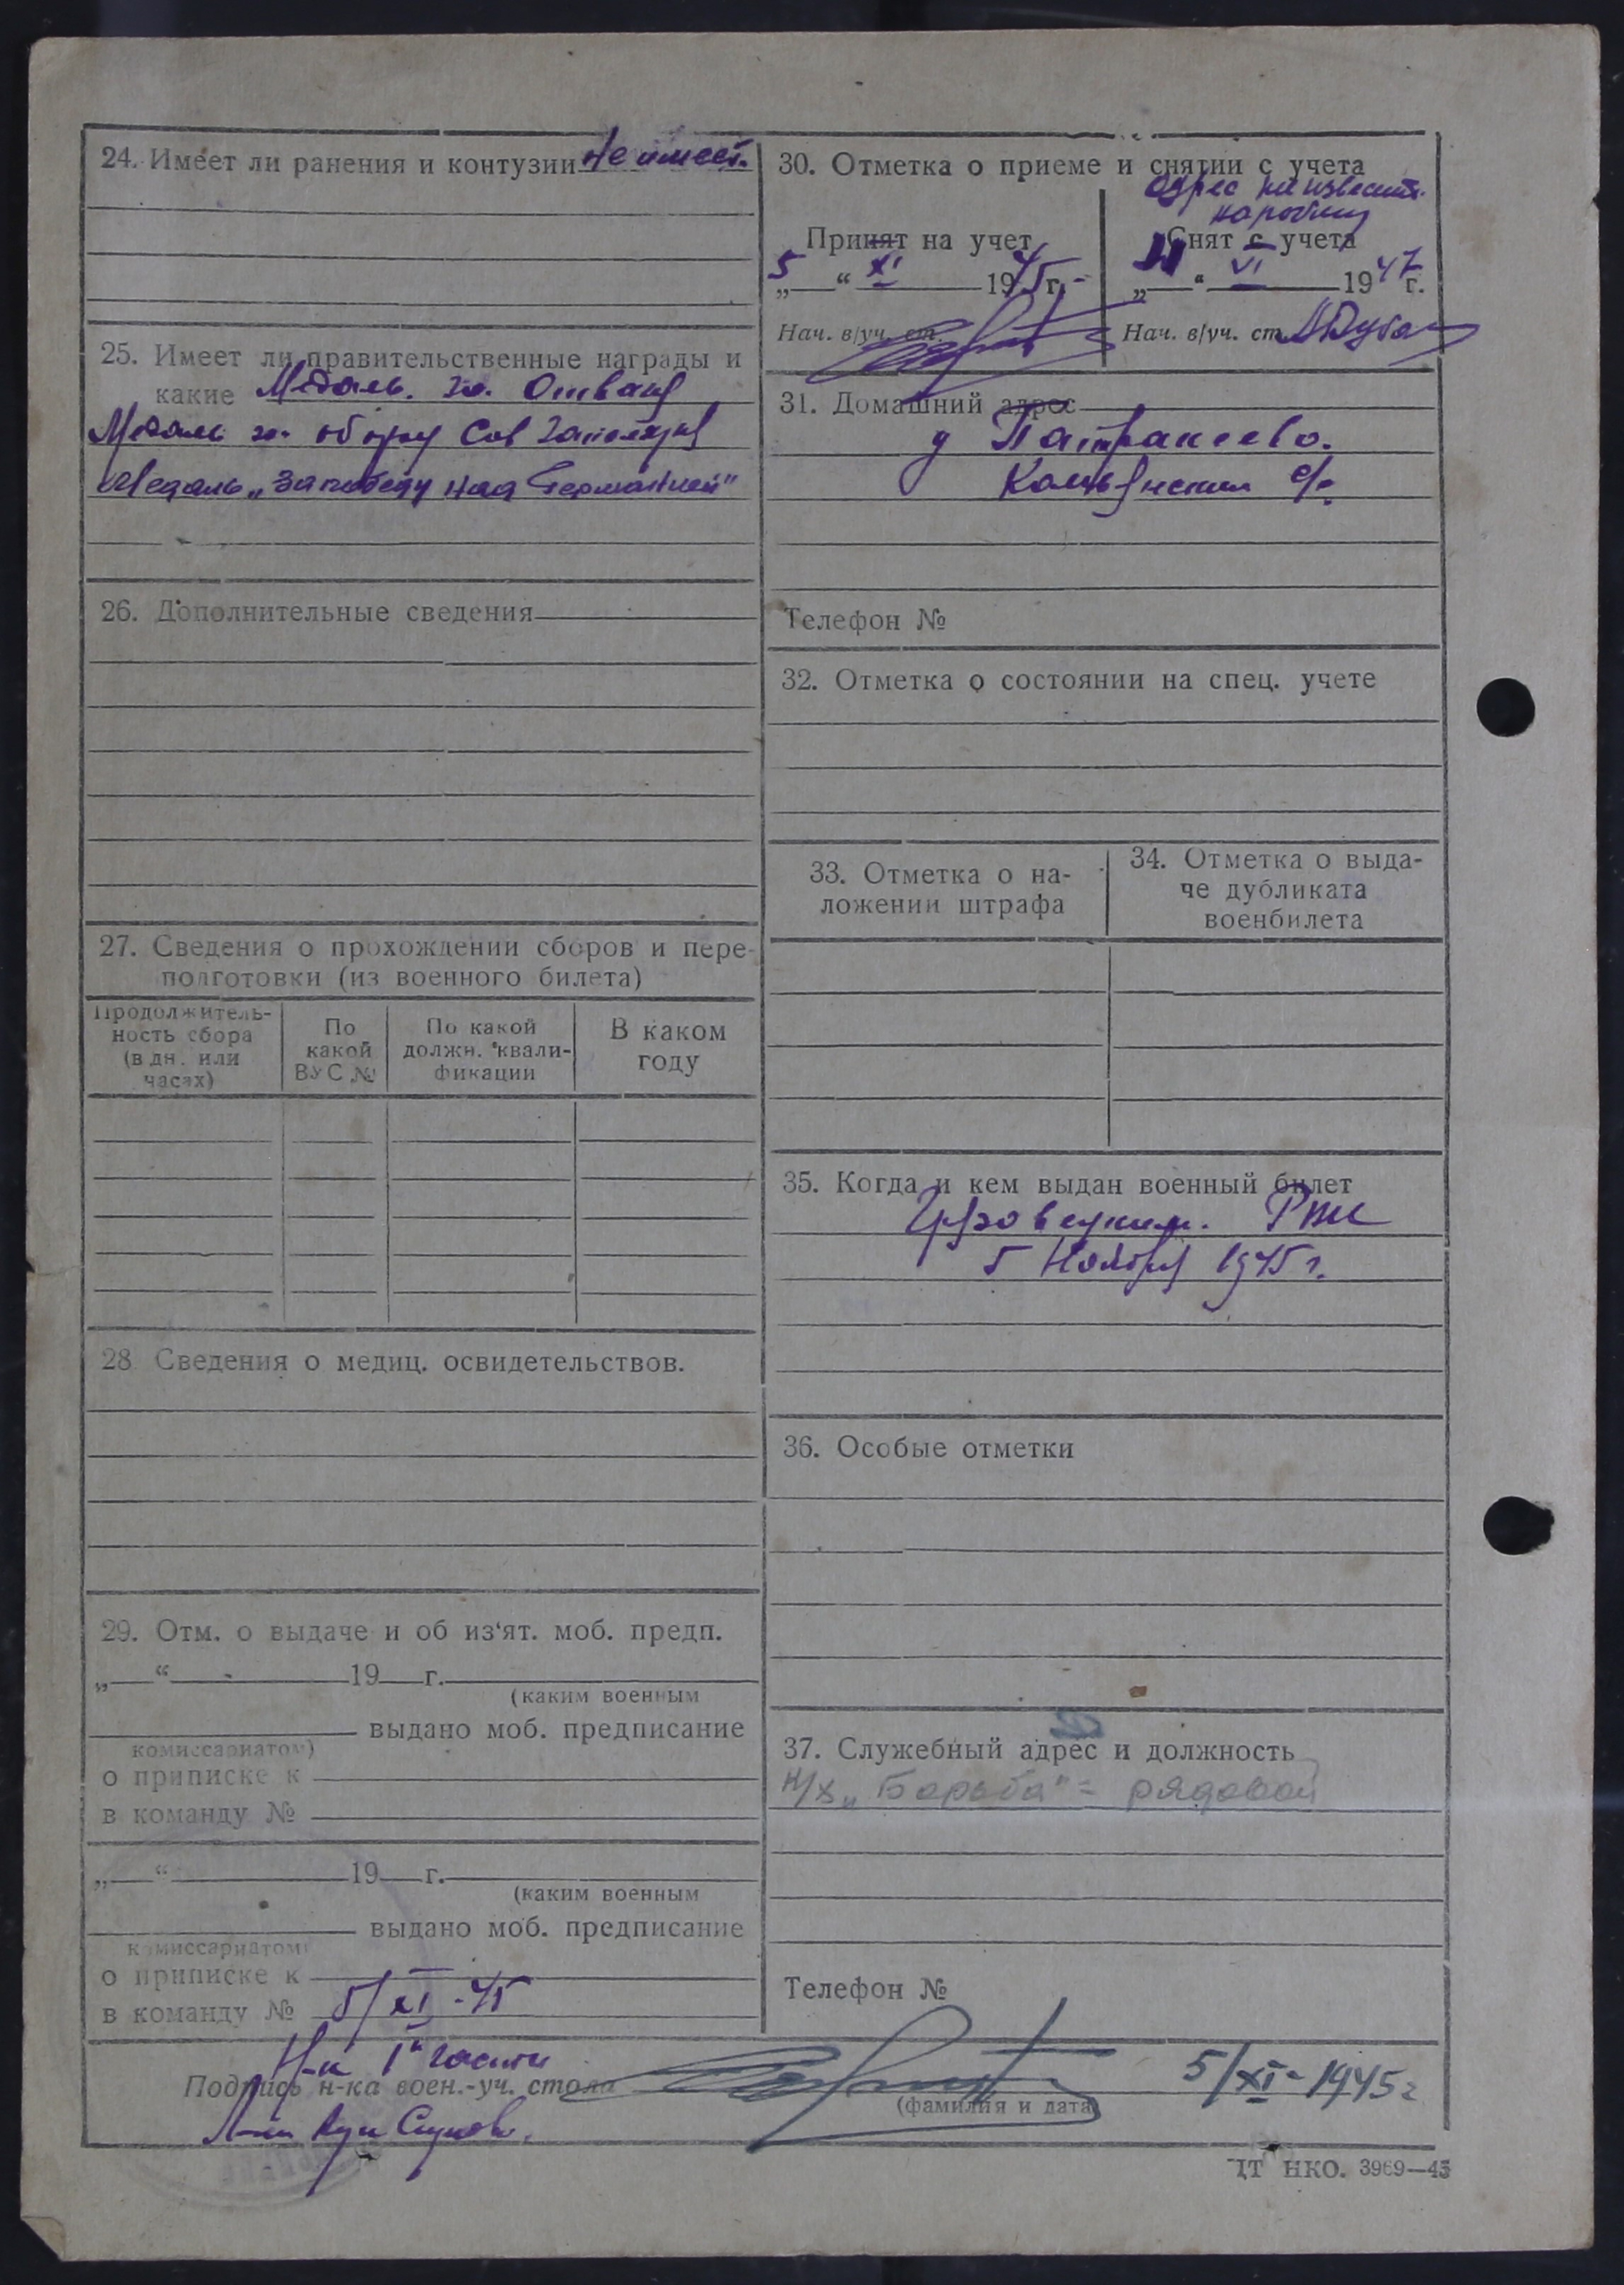 24. Имеет ли ранения и контузии Не имеет.
25. Имеет ли правительственные награды и
какие Медаль. за. Отвагу
Медаль за. оборону Сов Заполярья
Медаль „За победу над Германией"
26. Дополнительные сведения
27. Сведения о прохождении сборов и пере-
подготовки (из военного билета)
Продолжитель-
ность сбора
(в дн. или
часах)
По
какой
ВУС №
По какой
должн. квали-
фикации
В каком
году
28. Сведения о медиц. освидетельствов.
29. Отм. о выдаче и об из'ят. моб. предп.
„ “ 19 г.
(каким военным
выдано моб. предписание
комиссариатом)
о приписке к
в команду №
„ “ 19 г.
(каким военным
выдано моб. предписание
комиссариатом)
о приписке к
в команду № 5/XI-45
30. Отметка о приеме и снятии с учета
Адрес неизвестн.
Принят на учет
5 „ “ XI 1945 г.
Нач. в/уч. ст.
Снят с учета
„ “ VI 1947 г.
Нач. в/уч. ст.
31. Домашний адрес
д
с/с.
Телефон №
32. Отметка о состоянии на спец. учете
33. Отметка о на-
ложении штрафа
34. Отметка о выда-
че дубликата
военбилета
35. Когда и кем выдан военный билет
Грязовецким. РВК
5 Ноября 1945 г.
36. Особые отметки
37. Служебный адрес и должность
к/х „Борьба" = рядовой
Телефон №
Н-к 1й части
Подпись н-ка воен.-уч. стола
(фамилия и дата)
5/XI-1945 г
ЦТ НКО. 3969—45